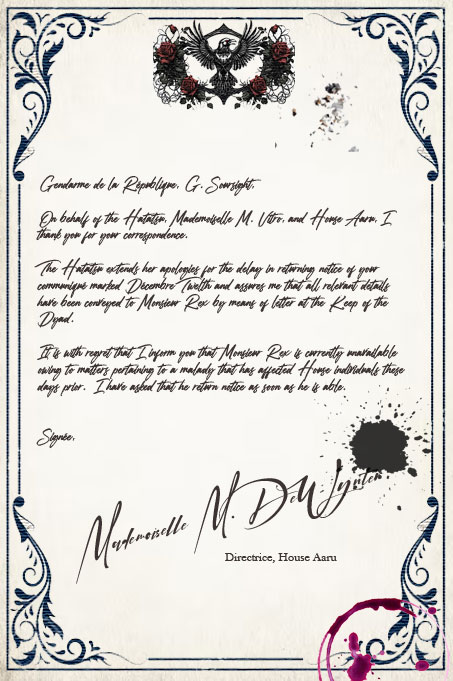 Gendarme de la République, G. Soursight,
On behalf of the Hatatsu, Mademoiselle M. Vitro, and House Aaru, I
thank you for your correspondence.
The Hatatsu extends her apologies for the delay in returning notice of your
communiqué marked Décembre Twelth and assures me that all relevant details
have been conveyed to Monsieur Rex by means of letter at the Keep of the
Dyad.
It is with regret that I inform you that Monsieur Rex is currently unavailable
owing to matters pertaining to a malady that has affected House individuals these
days prior. I have asked that he return notice as soon as he is able.
Signée,
Mademoiselle M. DeWynter
Directrice, House Aaru